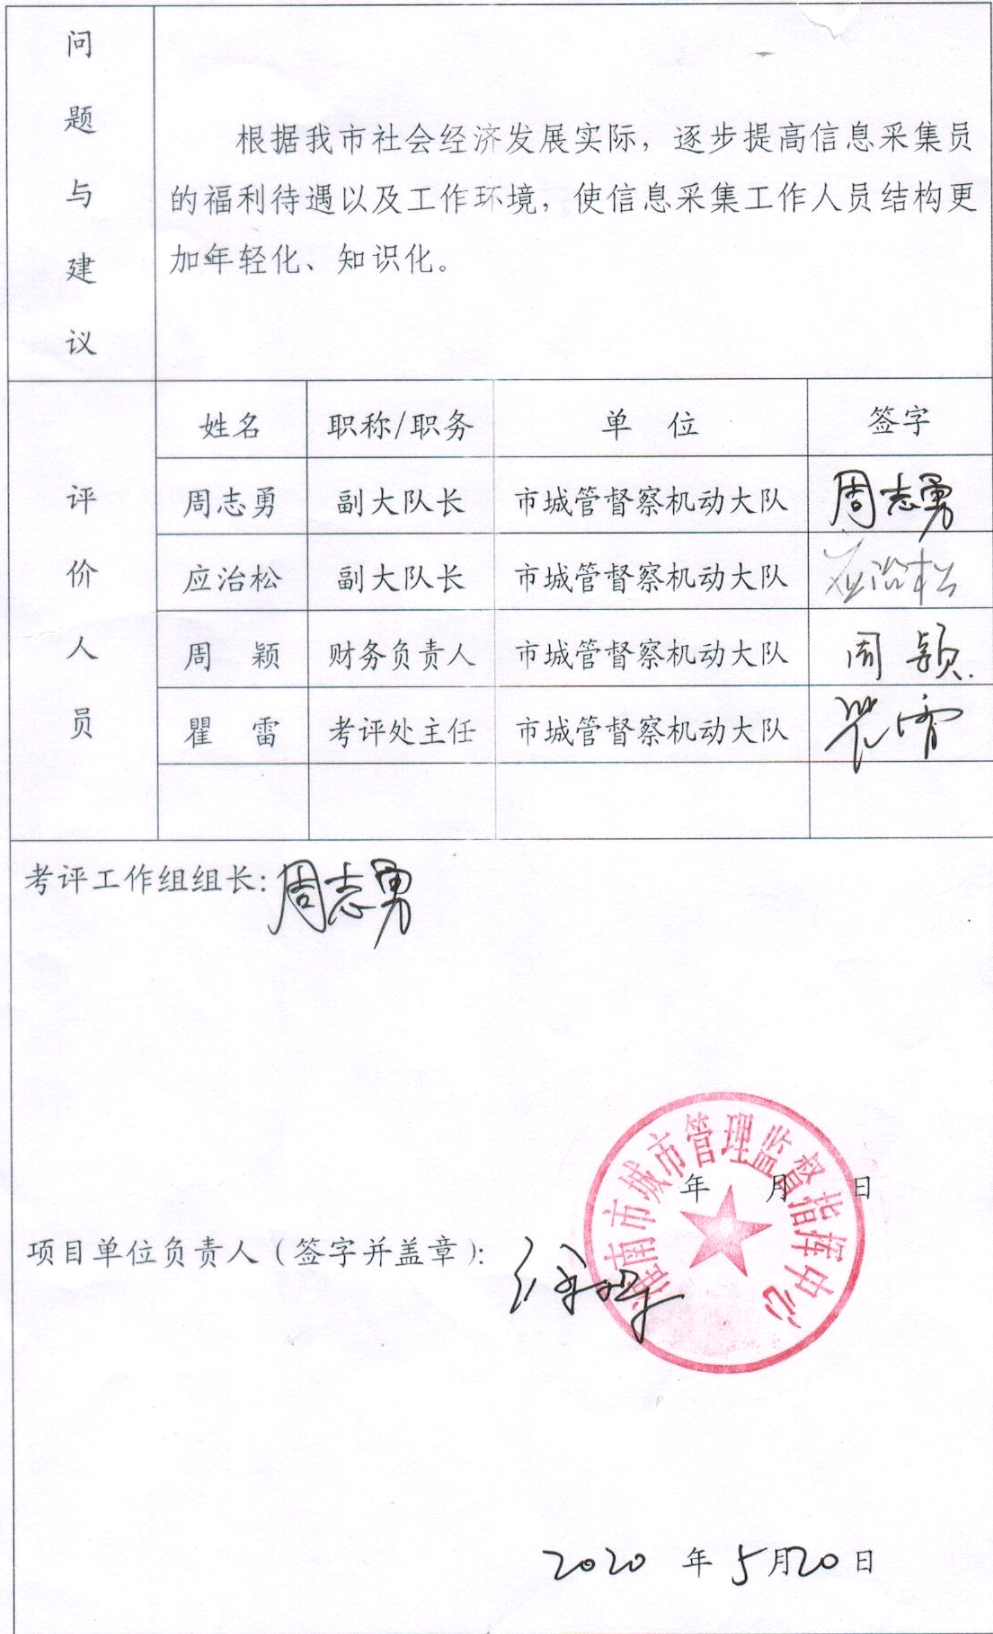 问题与建议
根据我市社会经济发展实际，逐步提高信息采集员
的福利待遇以及工作环境，使信息采集工作人员结构更
加年轻化、知识化。
评价人员
姓名 职称/职务 单 位 签字
周志勇 副大队长 市城管督察机动大队 周志勇
应治松 副大队长 市城管督察机动大队 应治松
周 颖 财务负责人 市城管督察机动大队 周颖
瞿 雷 考评处主任 市城管督察机动大队
考评工作组组长：周志勇
年 月 日
淮南市城市管理监督指挥中心
项目单位负责人（签字并盖章）：
2020 年 5月20日